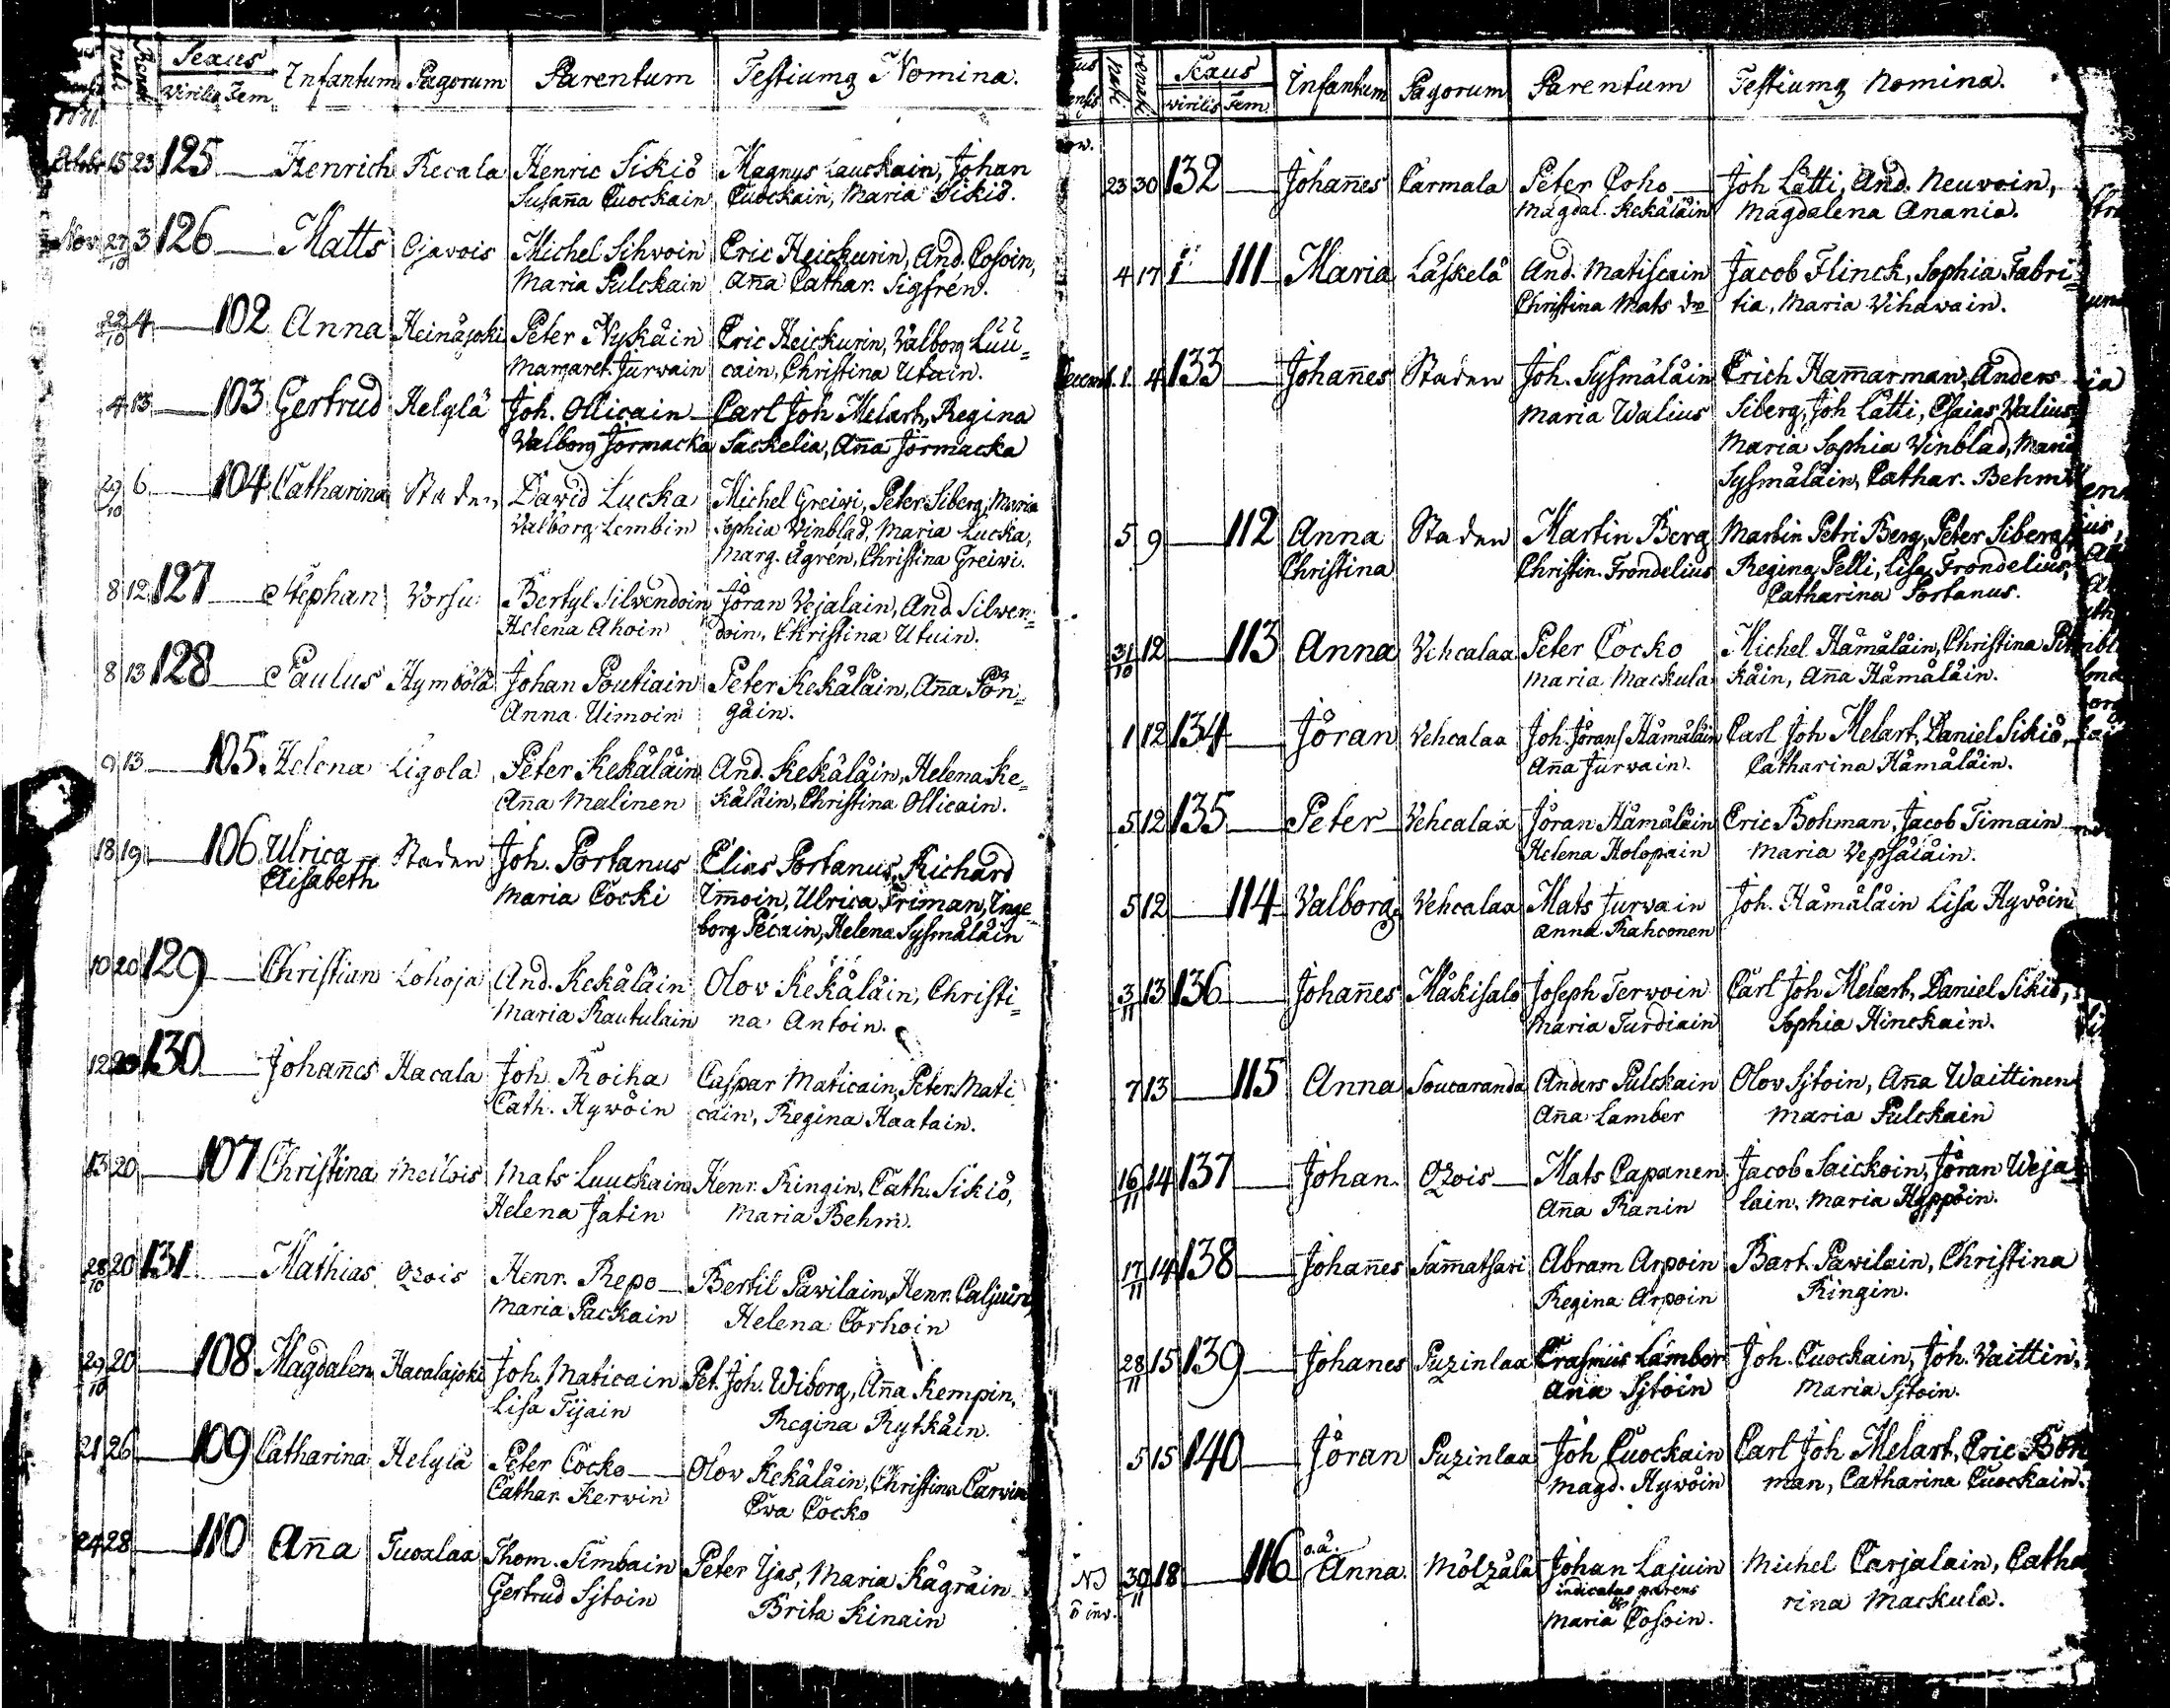 Nati Renati Sexus Infantum Pagorum Parentum Testiumq Nomina.
Virilis Fem.
Octobr 15 23 125 Henrich Recala Henric Sikiö Magnus Lauckain, Johan
Susan̄a Cuockain Cuockain, Maria Sikiö.
Nov 27/10 3 126 Matts Ojavois Michel Sihvoin Eric Heickurin, And. Cosoin,
Maria Pulckain An̄a Cathar. Sigfrén.
29/10 4 102 Anna Heinäjoki Peter Nykäin Eric Heickurin, Valborg Luu=
Margaret. Jurvain cain, Christina Utuin.
4 13 103 Gertrud Helylä Joh. Ollicain Carl Joh Melart, Regina
Valborg Jormacka Sackelia, An̄a Jormacka
29/10 6 104 Catharina Staden David Lucka Michel Greiwi, Peter Siberg, Maria
Valborg Lembin Sophia Vinblad, Maria Lucka,
Marg. Ågren, Christina Greiwi.
8 12 127 Stephan Vorsu Bertyl Silvendoin Jöran Vejalain, And Silven=
Helena Ahoin doin, Christina Utuin.
8 13 128 Paulus Hymbölä Johan Poutiain Peter Kekäläin, An̄a Pön=
Anna Uimoin gäin.
9 13 105 Helena Ligola Peter Kekäläin And. Kekäläin, Helena Ke=
An̄a Malinen käläin, Christina Ollicain.
18 19 106 Ulrica Staden Joh. Portanus Elias Portanus, Richard
Elisabeth Maria Cocki Im̄oin, Ulrica Friman, Inge=
borg Pécain, Helena Sysmäläin
10 20 129 Christian Lohoja And. Kekäläin Olov Kekäläin, Christi=
Maria Rautulain na Antoin.
12 20 130 Johan̄es Hacala Joh. Roiha Caspar Maticain, Peter Mati
Cath. Hywöin cain, Regina Haatain.
13 20 107 Christina Meilois Mats Luuckain Henr. Ringin, Cath. Sikiö,
Helena Jatin Maria Behm.
28/10 20 131 Mathias Ozois Henr. Repo Bertil Pavilain, Henr. Caljuin,
Maria Packain Helena Corhoin
29/10 20 108 Magdalen Hacalajoki Joh. Maticain Pet. Joh. Wiborg, An̄a Kempin,
Lisa Tijain Regina Rytkäin.
21 26 109 Catharina Helylä Peter Cocko Olov Kekäläin, Christina Carvin
Cathar. Kervin Eva Cocko
24 28 110 An̄a Tuoxlax Thom. Simbain Peter Ijas, Maria Kägräin
Gertrud Sjtoin Brita Kinain
Nati Renati Sexus Infantum Pagorum Parentum Testiumq Nomina.
Virilis Fem.
Nov.
23 30 132 Johan̄es Carmala Peter Coho Joh Lätti, And. Neuvoin,
Magdal. Kekäläin Magdalena Anania.
4 17 111 Maria Läskelä And. Matiscain Jacob Flinck, Sophia Fabri=
Christina Mats dr tia, Maria Vihavain.
Decemb. 1 4 133 Johan̄es Staden Joh. Sysmäläin Erich Ham̄arman, Anders
Maria Walius Siberg, Joh Lätti, Esaias Valius,
Maria Sophia Vinblad, Maria
Sysmäläin, Cathar. Behm
5 9 112 Anna Staden Martin Berg Martin Petri Berg, Peter Siberg,
Christina Christin. Frondelius Regina Pelli, Lisa Frondelius,
Catharina Portanus.
31/10 12 113 Anna Vehcalax Peter Cocko Michel Hämäläin, Christina Pit
Maria Mackula käin, An̄a Hämäläin.
1 12 134 Jöran Vehcalax Joh. Jörans Hämäläin Carl Joh Melart, Daniel Sikiö,
An̄a Jurvain. Catharina Hämäläin.
5 12 135 Peter Vehcalax Jöran Hämäläin Eric Bohman, Jacob Timain
Helena Holopain Maria Vepsäläin.
5 12 114 Valborg Vehcalax Mats Jurvain Joh. Hämäläin Lisa Hyvöin
Anna Rahconen
3/11 13 136 Johan̄es Mäkisalo Joseph Tervoin Carl Joh Melart, Daniel Sikiö,
Maria Turdiain Sophia Hinckain.
7 13 115 Anna Soucaranda Anders Pulckain Olov Sjtoin, An̄a Waittinen
An̄a Lamber Maria Pulckain
16/11 14 137 Johan Ozois Mats Capanen Jacob Saickoin, Jöran Weja
An̄a Ranin lain, Maria Hyppöin.
17/11 14 138 Johan̄es Sam̄atsari Abram Arpoin Bart. Pavilain, Christina
Regina Arpoin Ringin.
28/11 15 139 Johanes Puzinlax Erasmus Lamber Joh. Cuockain, Joh. Vaittin,
Ana Sjtoin Maria Sjtoin.
5 15 140 Jöran Puzinlax Joh Cuockain Carl Joh Melart, Eric Boh
Magd. Hyvöin man, Catharina Cuockain.
o.ä.
30/11 18 116 Anna Mölzälä Johan Lajuin Michel Carjalain, Catha
indicatus parens
Maria Cosoin. rina Mackula.